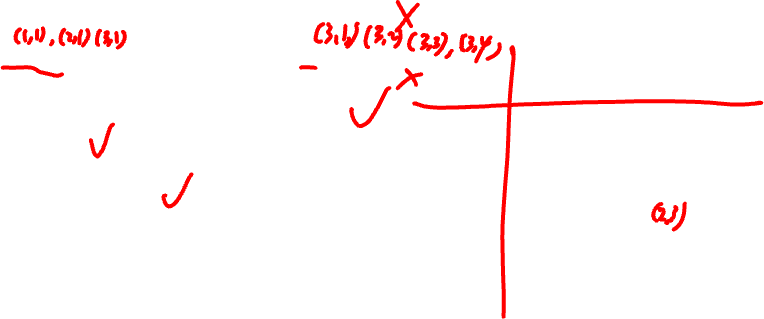 (1,1), (2,1) (3,1)
(3,1,) (3,2) (3,3), (3,4,